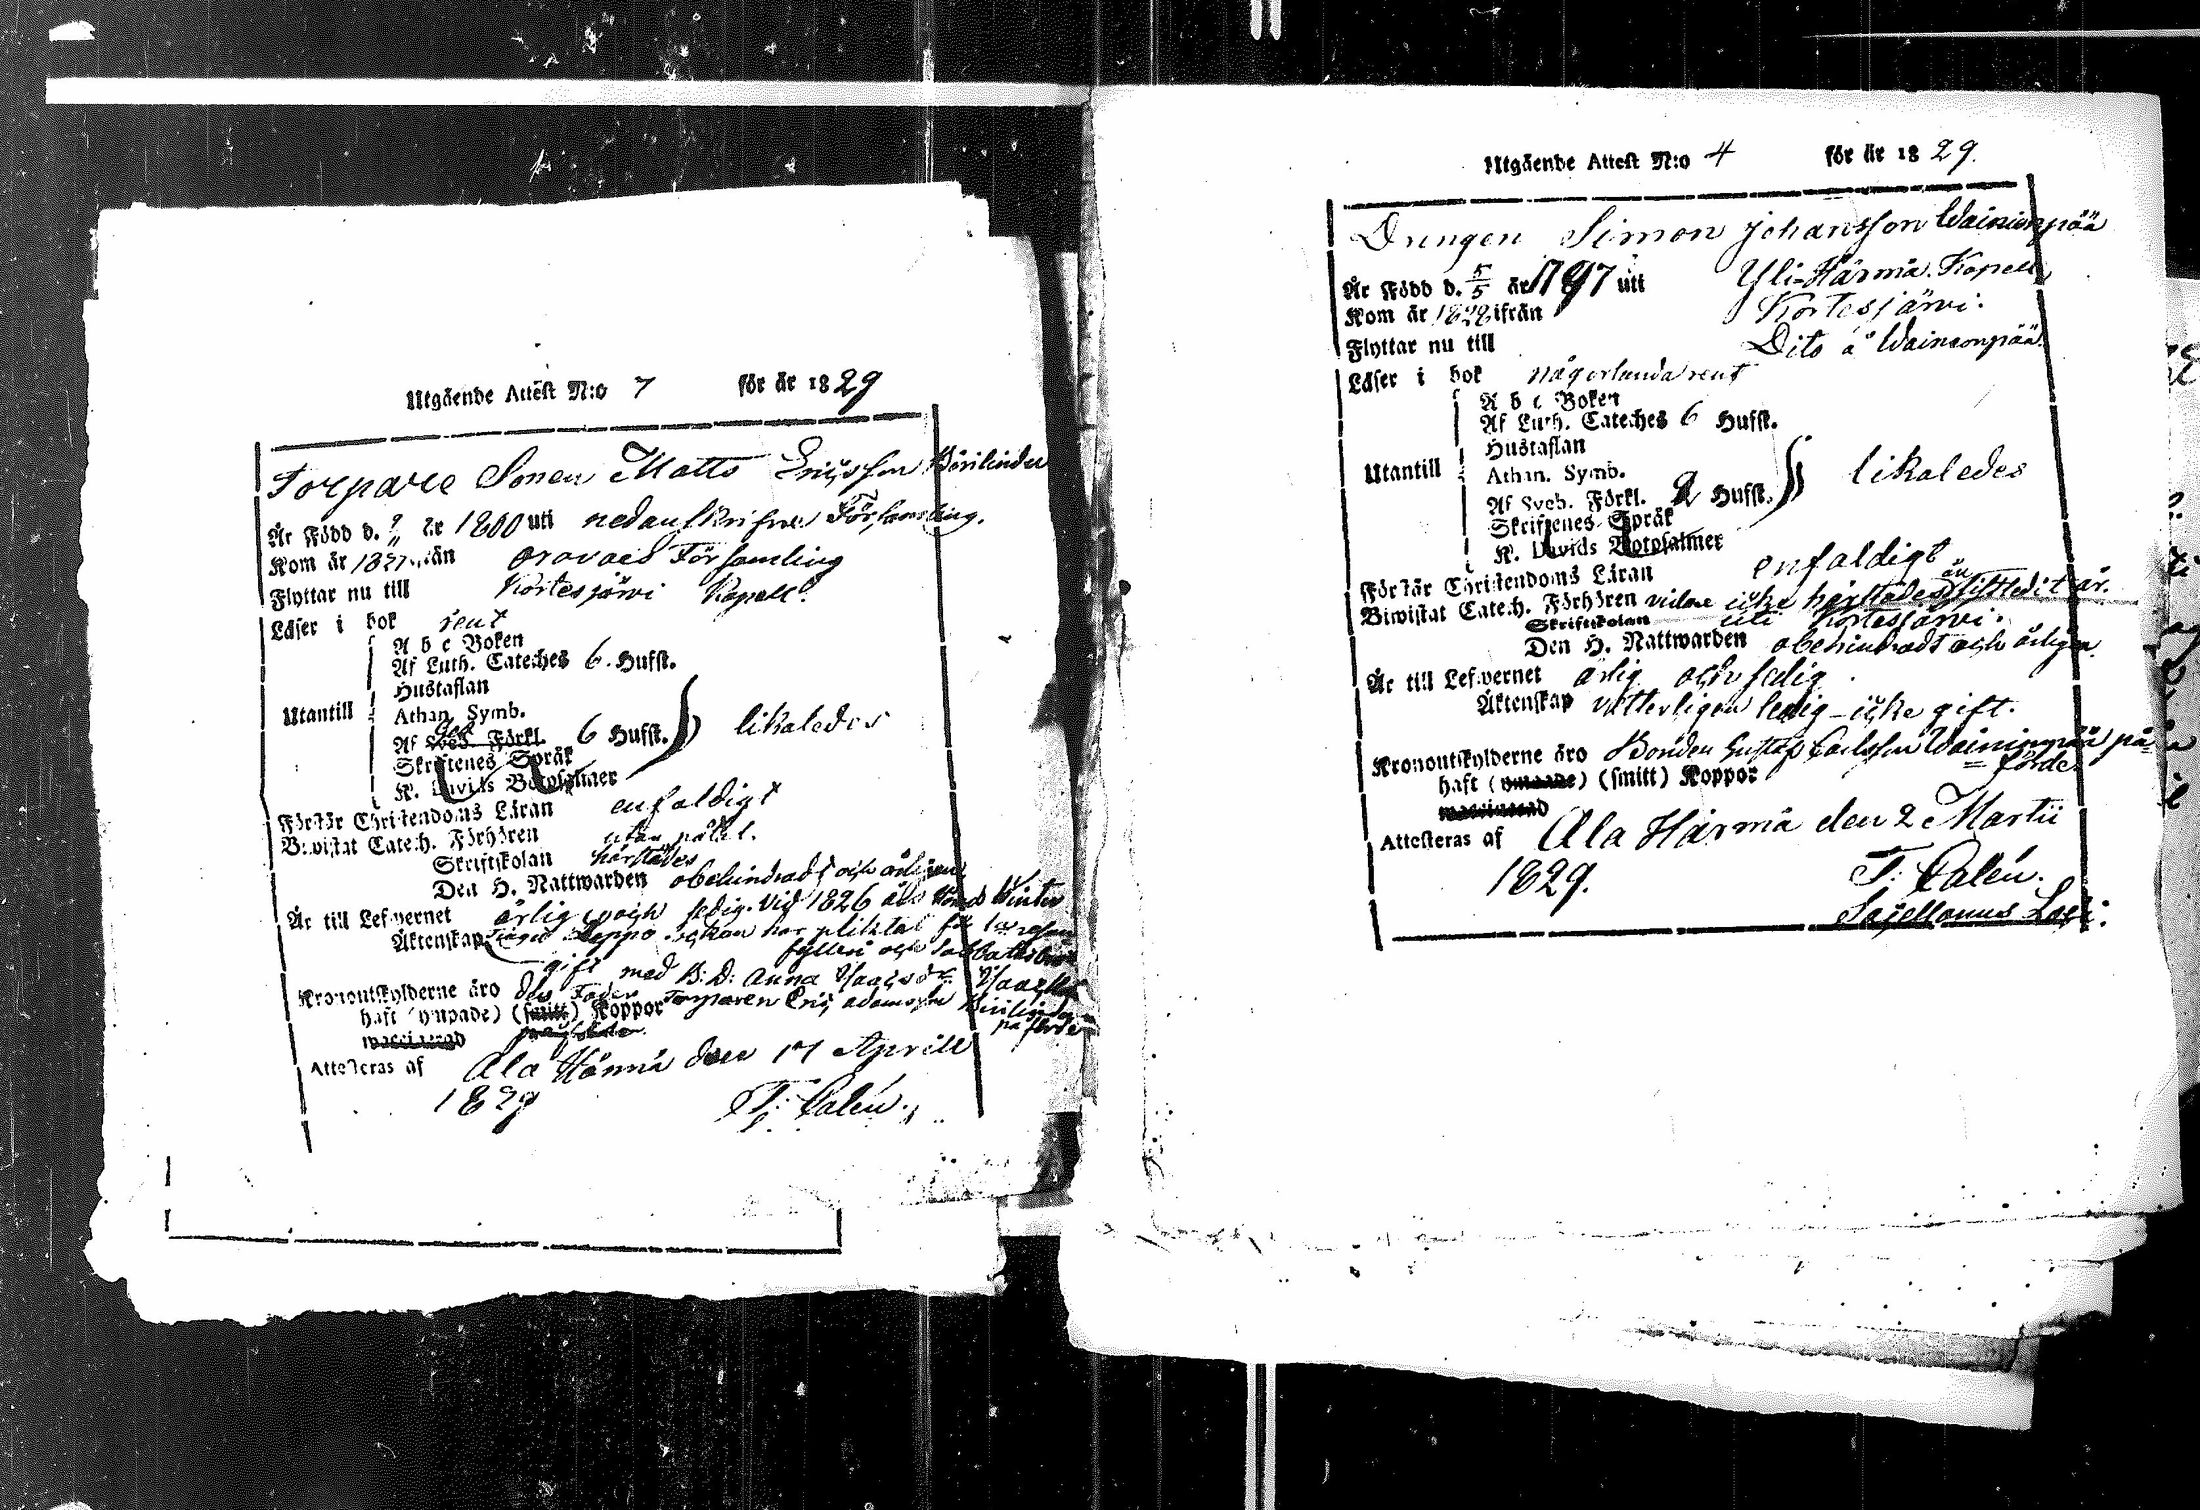 Utgående Attest N:o 7 för år 1829
Torpare Sonen Matts Ericsson Börilinder
Är Född d. ? år 1800 uti nedanskrifne Församling.
Kom år 1827 ifrån Orovaes Församling
Flyttar nu till Kortesjärvi Kapell.
Läser i bok rent
A b c Boken
Af Luth. Cateches 6. Hufst.
Hustaflan
Utantill
Athan. Symb.
Af Sveb. Förkl. 6 Hufst. likaledes
Skriftenes Språk
K. Davids Botpsalmer
Förstår Christendoms Läran enfaldigt
Biwistat Catech. Förhören utan påtal.
Skriftskolan härstädes
Den H. Nattwarden obehindradt och årligen
Är till Lefwernet ärlig och sedig. Vid 1826 års Vinter
Äktenskap har pliktat för
fylleri och Sabbatsbrott
gift med B: D: Anna
Kronoutskylderne äro des Fader Torparen Eric Adamsson
haft (ympade) (smitt) Koppor påförde
Attesteras af Ala Härmä den 17 Aprill
1829 T: Calén.
Utgående Attest N:o 4 för år 1829.
Drengen Simon Johansson Wainionpää
Är Född d. 5/5 år 1797 uti Yli-Härmä Kapell,
Kom år 1828 ifrån Kortesjärvi.
Flyttar nu till Dito å Wainionpää.
Läser i bok någorlunda rent
A b c Boken
Af Luth. Cateches 6 Hufst.
Hustaflan
Utantill
Athan. Symb.
Af Sveb. Förkl. 2 Hufst. likaledes
Skriftenes Språk
K. Davids Botpsalmer
Förstår Christendoms Läran enfaldigt
Biwistat Catech. Förhören vidare icke härstädes än sistledit år.
Skriftskolan uti Kortesjärvi.
Den H. Nattwarden obehindradt och årligen.
Är till Lefwernet ärlig och sedig
Äktenskap vitterligen ledig - icke gift.
Kronoutskylderne äro Bonden Gustaf Carlsson Wainionpää på=
=förde.
haft (ympade) (smitt) Koppor
Attesteras af Ala Härmä den 2 Martii
1829. T: Calén.
Sacellanus Loci: